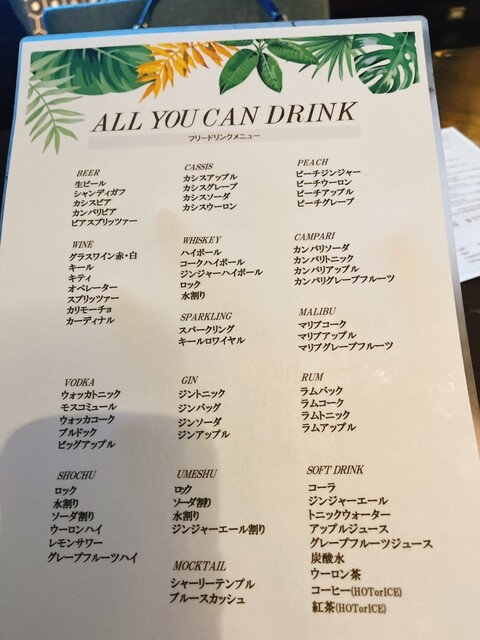 ALL YOU CAN DRINK
フリードリンクメニュー
BEER
生ビール
シャンディガフ
カシスビア
カンパリビア
ビアスプリッツァー
CASSIS
カシスアップル
カシスグレープ
カシスソーダ
カシスウーロン
PEACH
ピーチジンジャー
ピーチウーロン
ピーチアップル
ピーチグレープ
WINE
グラスワイン赤・白
キール
キティ
オペレーター
スプリッツァー
カリモーチョ
カーディナル
WHISKEY
ハイボール
コークハイボール
ジンジャーハイボール
ロック
水割り
CAMPARI
カンパリソーダ
カンパリトニック
カンパリアップル
カンパリグレープフルーツ
SPARKLING
スパークリング
キールロワイヤル
MALIBU
マリブコーク
マリブアップル
マリブグレープフルーツ
VODKA
ウォッカトニック
モスコミュール
ウォッカコーク
ブルドック
ビッグアップル
GIN
ジントニック
ジンバッグ
ジンソーダ
ジンアップル
RUM
ラムバック
ラムコーク
ラムトニック
ラムアップル
SHOCHU
ロック
水割り
ソーダ割り
ウーロンハイ
レモンサワー
グレープフルーツハイ
UMESHU
ロック
ソーダ割り
水割り
ジンジャーエール割り
MOCKTAIL
シャーリーテンプル
ブルースカッシュ
SOFT DRINK
コーラ
ジンジャーエール
トニックウォーター
アップルジュース
グレープフルーツジュース
炭酸水
ウーロン茶
コーヒー(HOTorICE)
紅茶(HOTorICE)